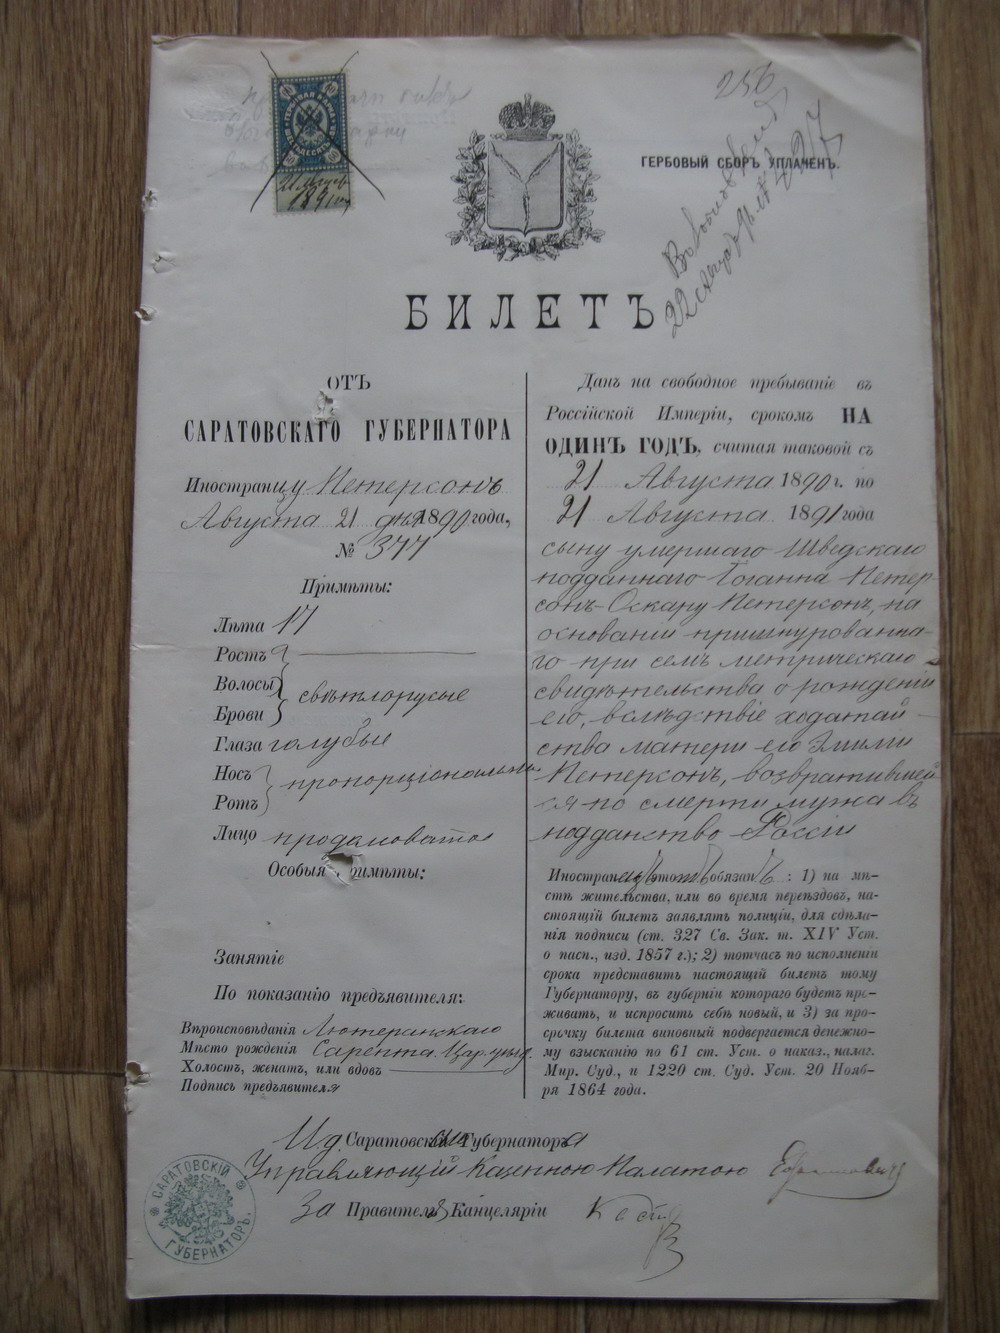 256
ГЕРБОВЫЙ СБОРЪ УПЛАЧЕНЪ.
1891
БИЛЕТЪ
ОТЪ
САРАТОВСКАГО ГУБЕРНАТОРА
Иностранцу Петерсонъ
Августа 21 дня 1890 года,
№ 377
Примѣты:
Лѣта 17
Ростъ
Волосы
Брови
свѣтлорусые
Глаза голубые
Носъ
Ротъ
пропорціональны
Лицо продолговатое
Особыя примѣты:
Занятіе
По показанію предъявителя:
Вѣроисповѣданія Лютеранскаго
Мѣсто рожденія Сарепта Цар. уѣзд.
Холостъ, женатъ, или вдовъ
Подпись предъявителя
Данъ на свободное пребываніе въ
Россійской Имперіи, срокомъ НА
ОДИНЪ ГОДЪ, считая таковой съ
21 Августа 1890 г. по
21 Августа 1891 года
сыну умершаго Шведскаго
подданнаго Іоганна Петер-
сонъ-Оскару Петерсонъ, на
основаніи пришнурованна-
го при семъ метрическаго
свидѣтельства о рожденіи
его, вслѣдствіе ходатай-
ства матери его Эмиліи
Петерсонъ, возвратившей-
ся по смерти мужа въ
подданство Россіи
Иностранецъ этотъ обязанъ: 1) на мѣ-
стѣ жительства, или во время переѣздовъ, на-
стоящій билетъ заявлять полиціи, для сдѣла-
нія подписи (ст. 327 Св. Зак. т. XIV Уст.
о пасп., изд. 1857 г.); 2) тотчасъ по исполненіи
срока представить настоящій билетъ тому
Губернатору, въ губерніи котораго будетъ про-
живать, и испросить себѣ новый, и 3) за про-
срочку билета виновный подвергается денежно-
му взысканію по 61 ст. Уст. о наказ., налаг.
Мир. Суд., и 1220 ст. Суд. Уст. 20 Нояб-
ря 1864 года.
И д. Саратовскаго Губернатора
Управляющій Казенною Палатою
За Правителя Канцеляріи
САРАТОВСКІЙ
ГУБЕРНАТОРЪ.